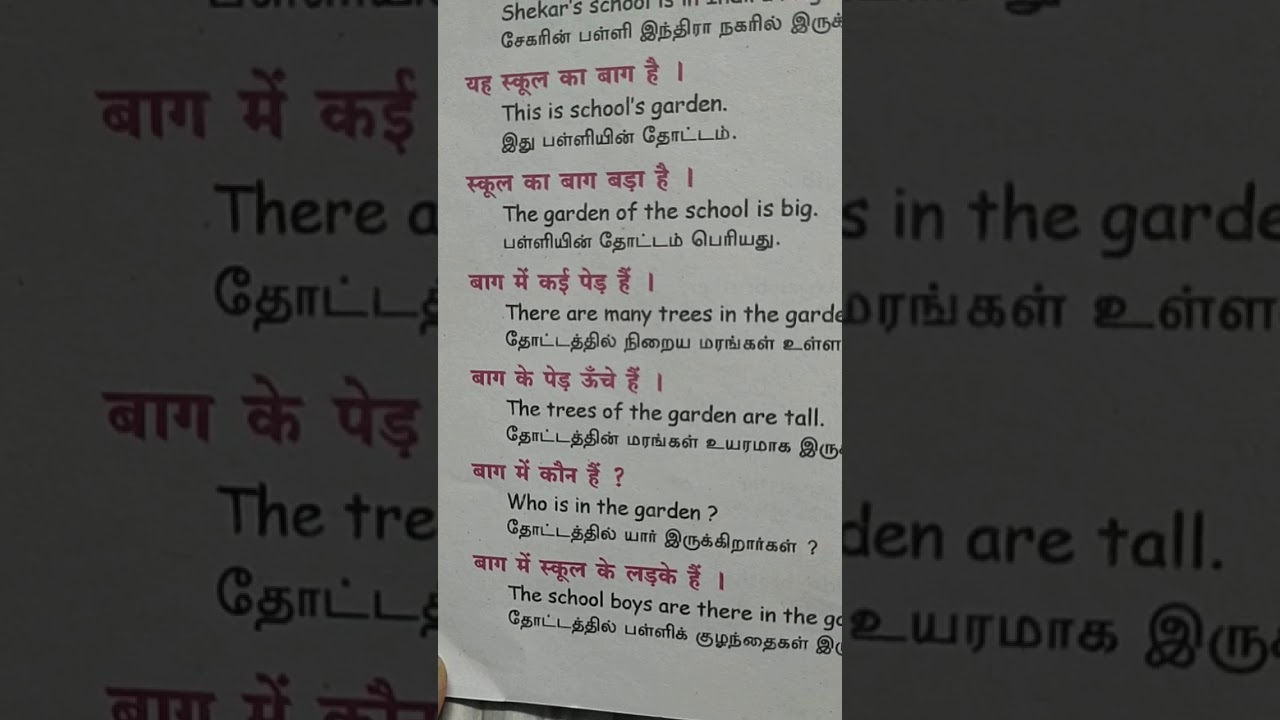 Shekar's school is in
சேகரின் பள்ளி இந்திரா நகரில்
यह स्कूल का बाग है ।
This is school's garden.
இது பள்ளியின் தோட்டம்.
स्कूल का बाग बड़ा है ।
The garden of the school is big.
பள்ளியின் தோட்டம் பெரியது.
बाग में कई पेड़ हैं ।
There are many trees in the garde
தோட்டத்தில் நிறைய மரங்கள் உள்ள
बाग के पेड़ ऊँचे हैं ।
The trees of the garden are tall.
தோட்டத்தின் மரங்கள் உயரமாக இரு
बाग में कौन हैं ?
Who is in the garden ?
தோட்டத்தில் யார் இருக்கிறார்கள் ?
बाग में स्कूल के लड़के हैं ।
The school boys are there in the
தோட்டத்தில் பள்ளிக் குழந்தைகள்